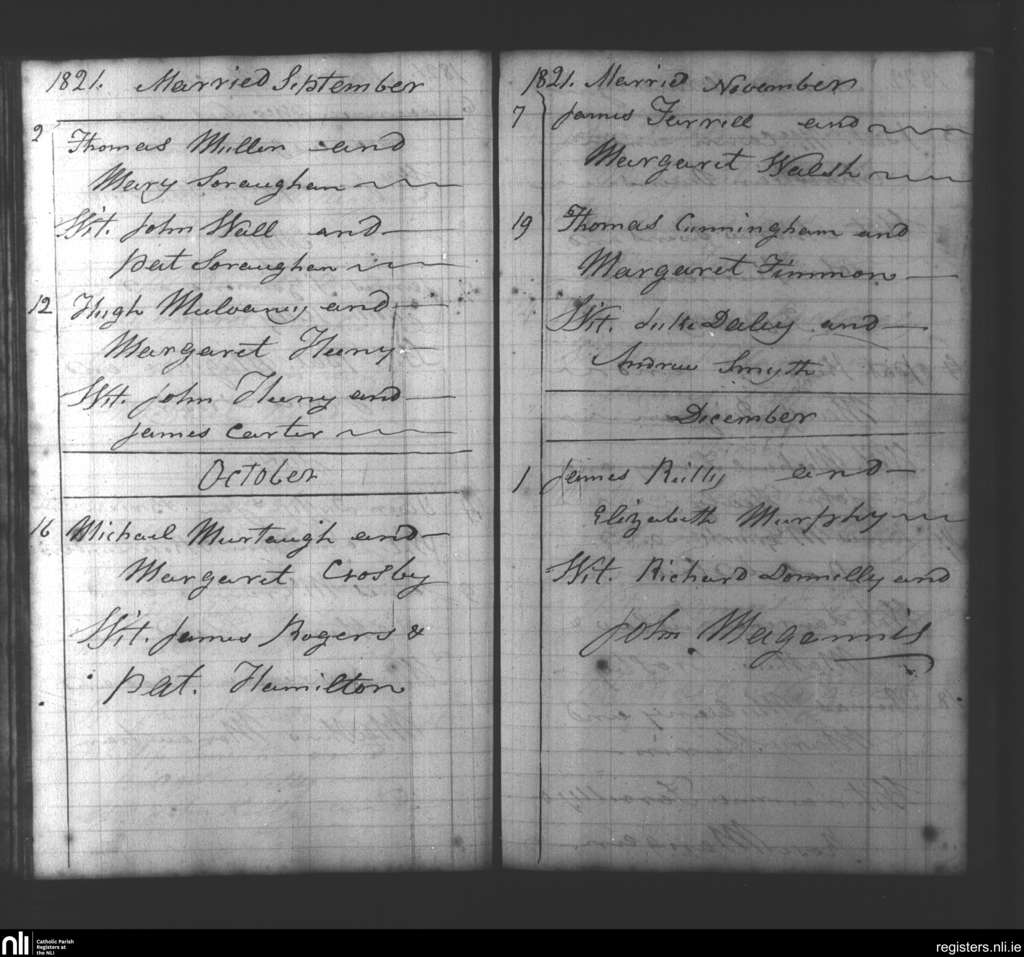 1821. Married September
2 Thomas Mullen and
Mary Soraughan
Wit. John Wall and
Pat Soraughan
12 Hugh Mulvany and
Margaret Heeny
Wit. John Heeny and
James Carter
October
16 Michael Murtaugh and
Margaret Crosby
Wit. James Rogers &
Pat. Hamilton
1821. Married November
7 James Farrell and
Margaret Walsh
19 Thomas Cunningham and
Margaret Timmon
Wit. Luke Daley and
Andrew Smyth
December
1 James Reilly and
Elizabeth Murphy
Wit. Richard Donnelly and
John Magennis
nli Catholic Parish
Registers at
the NLI
registers.nli.ie